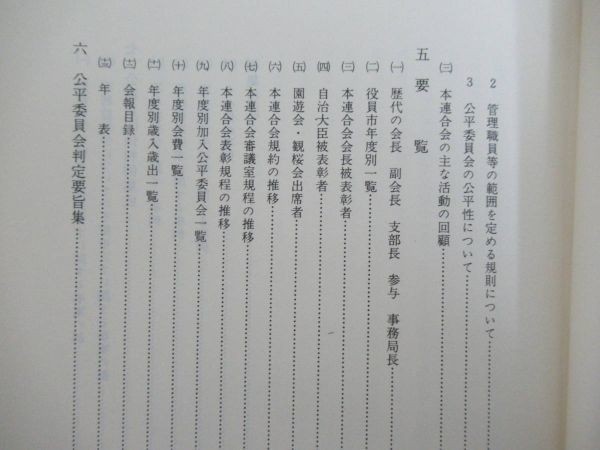 2 管理職員等の範囲を定める規則について
3 公平委員会の公平性について
㈢ 本連合会の主な活動の回顧
五 要覧
㈠ 歴代の会長 副会長 支部長 参与 事務局長
㈡ 役員市年度別一覧
㈢ 本連合会会長被表彰者
㈣ 自治大臣被表彰者
㈤ 園遊会・観桜会出席者
㈥ 本連合会規約の推移
㈦ 本連合会審議室規程の推移
㈧ 本連合会表彰規程の推移
㈨ 年度別加入公平委員会一覧
㈩ 年度別会費一覧
(十一) 年度別歳入歳出一覧
(十二) 会報目録
(十三) 年表
六 公平委員会判定要旨集